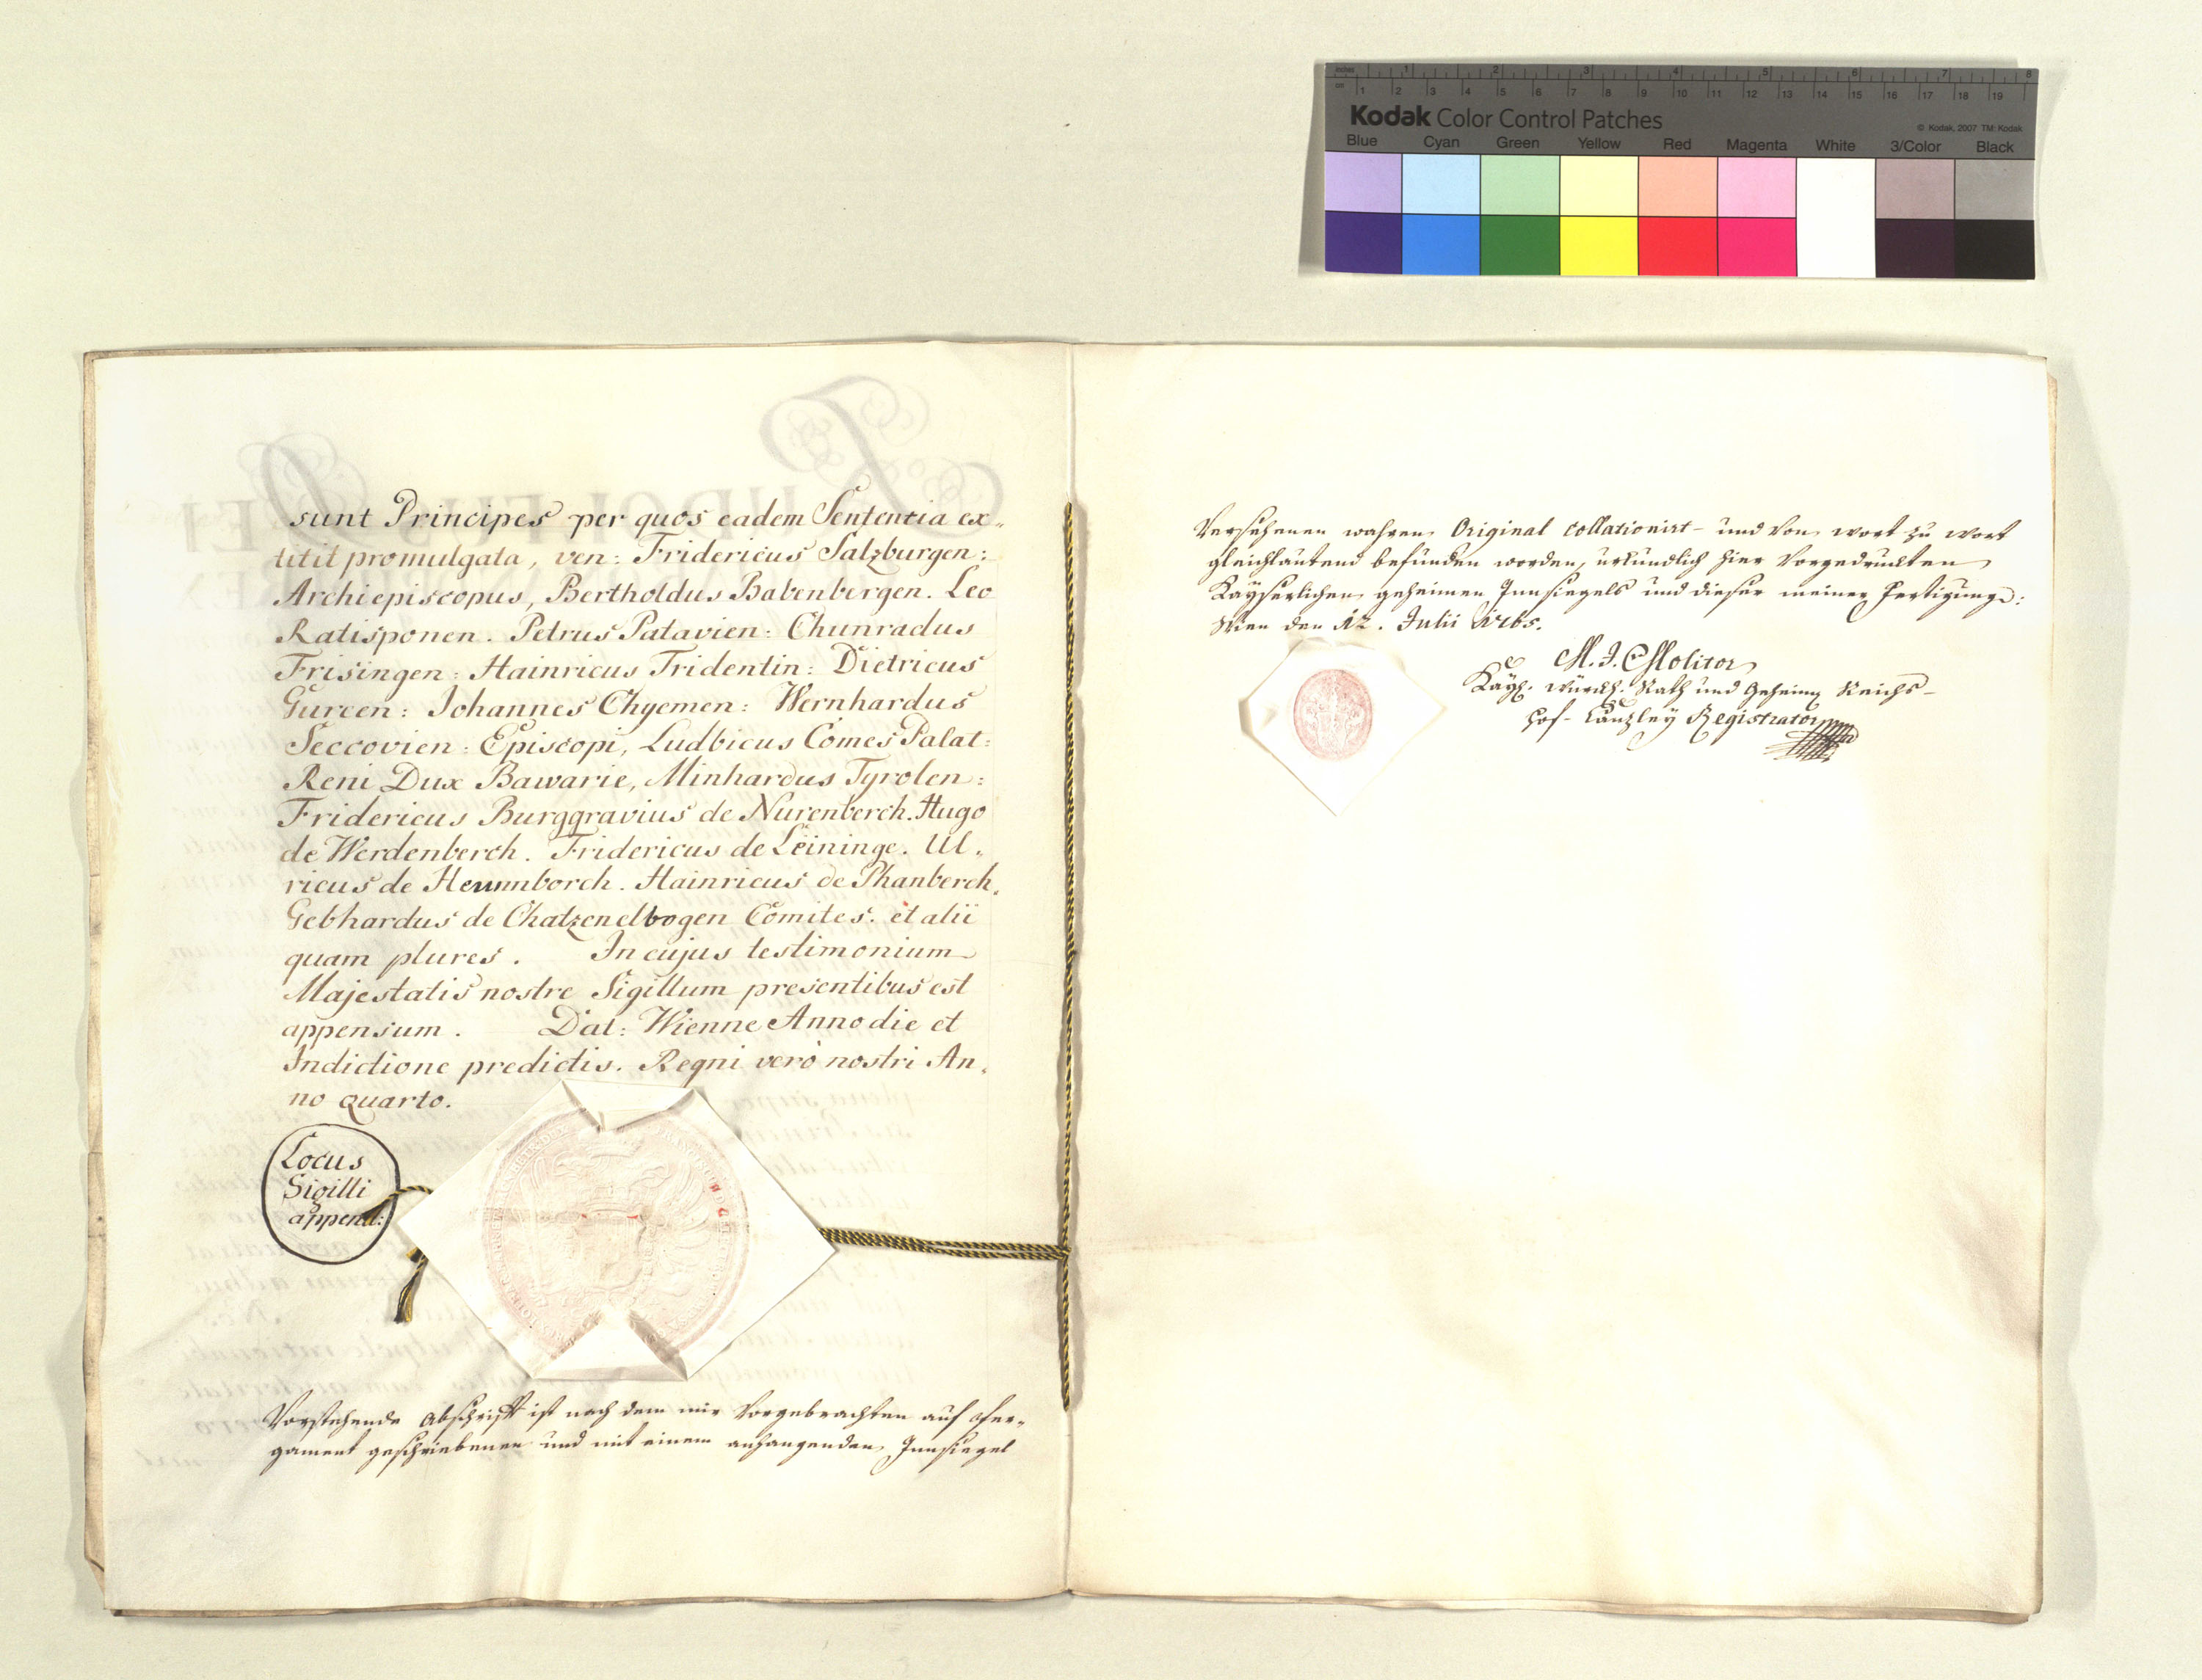 inches 1 2 3 4 5 6 7 8
cm 1 2 3 4 5 6 7 8 9 10 11 12 13 14 15 16 17 18 19
Kodak Color Control Patches
© Kodak, 2007 TM: Kodak
Blue Cyan Green Yellow Red Magenta White 3/Color Black
sunt Principes per quos eadem Sententia ex„
titit promulgata, ven: Fridericus Salzburgen:
Archiepiscopus, Bertholdus Babenbergen. Leo
Ratisponen. Petrus Patavien: Chunradus
Frisingen: Hainricus Tridentin: Dietricus
Gurcen: Johannes Chyemen: Wernhardus
Seccovien: Episcopi, Ludbicus Comes Palat:
Reni Dux Bawarie, Minhardus Tyrolen:
Fridericus Burggravius de Nurenberch. Hugo
de Werdenberch. Fridericus de Leininge. Ul„
ricus de Heunnborch. Hainricus de Phanberch.
Gebhardus de Chatzenelbogen Comites. et alii
quam plures. In cujus testimonium
Majestatis nostre Sigillum presentibus est
appensum. Dat: Wienne Anno die et
Indictione predictis. Regni verò nostri An„
no quarto.
Locus
Sigilli
append:
Vorstehende Abschrifft ist nach dem mir Vorgebrachten auf Per„
gament geschriebenen und mit einem anhangenden Innsiegel
Versehenen wahren Original collationirt- und Von wort zu wort
gleichlautend befunden worden, urkundlich hier Vorgedruckten
Kayserlichen geheimen Innsiegels und dieser meiner Fertigung:
Wien den 12. Julii 1765.
M. J. Molitor
Kayl. würckl. Rath und Geheimer Reichs-
Hof-Canzley Registrator